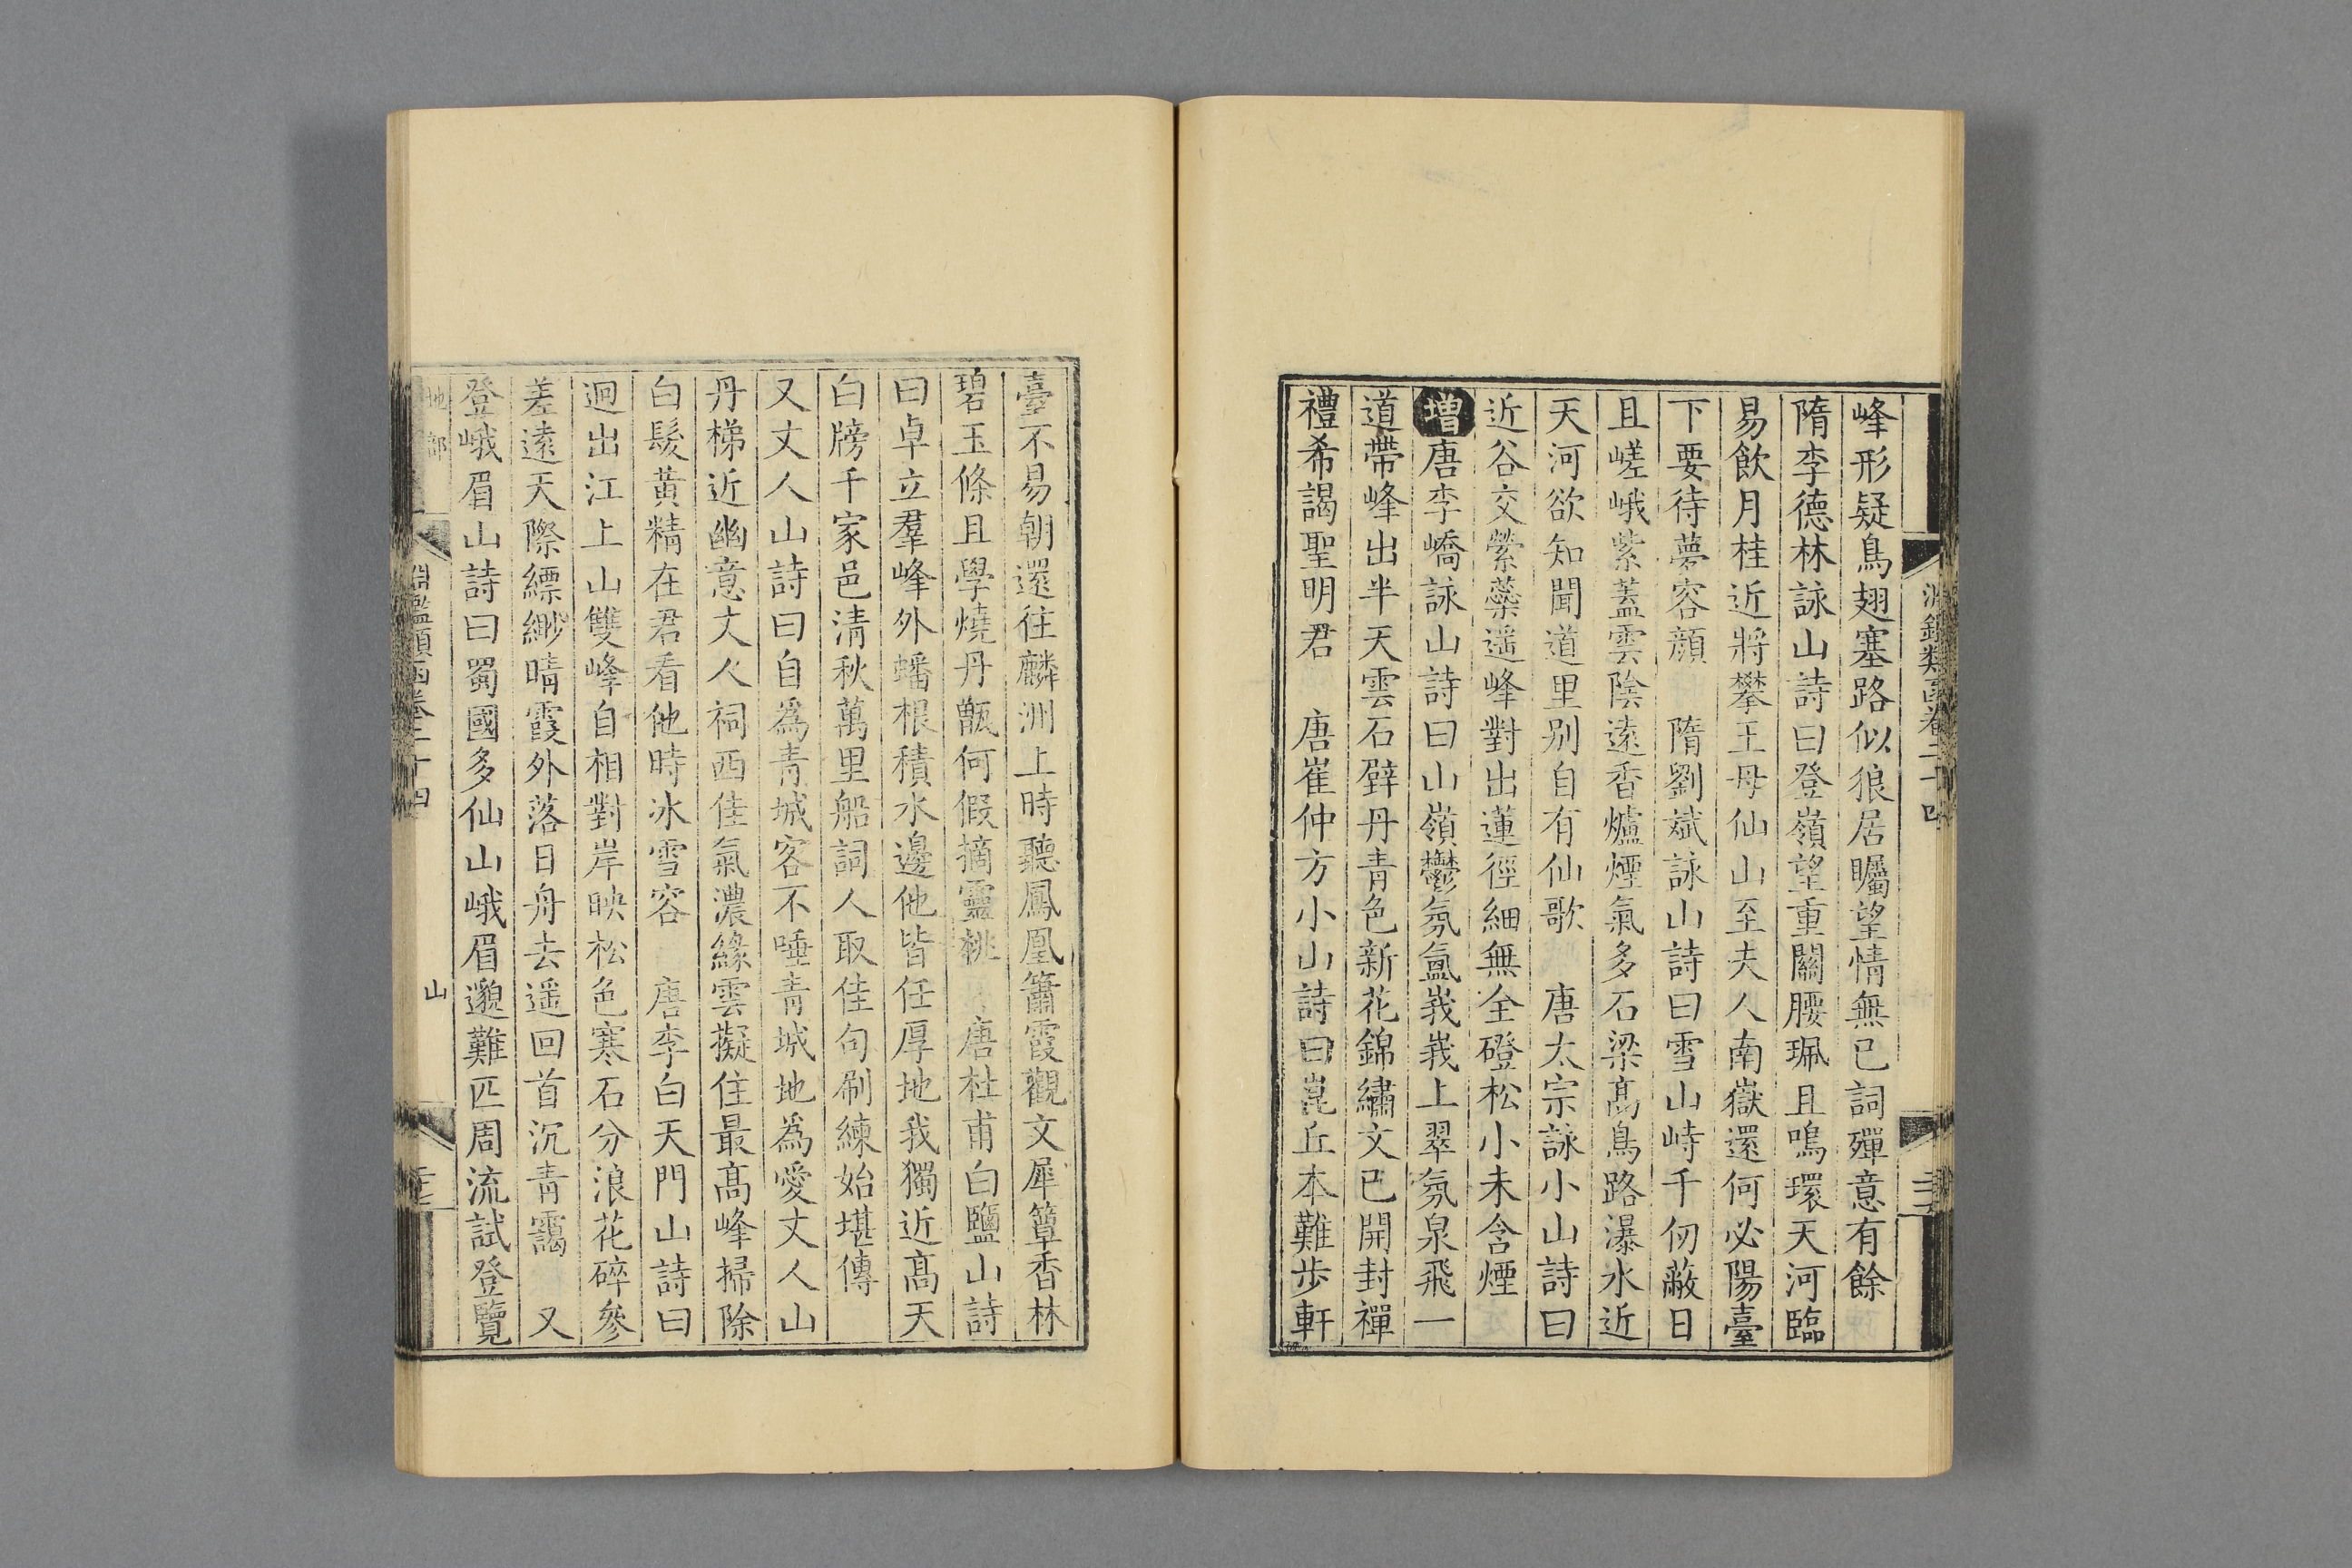 淵鑑類函卷二十四
峰形疑鳥翅塞路似狼居矚望情無已詞殫意有餘
隋李德林詠山詩曰登嶺望重關腰珮且鳴環天河臨
易飲月桂近將攀王母仙山至夫人南嶽還何必陽臺
下要待夢容顔 隋劉斌詠山詩曰雪山峙千仞蔽日
且嵯峨紫蓋雲陰遠香爐煙氣多石梁高鳥路瀑水近
天河欲知聞道里别自有仙歌 唐太宗詠小山詩曰
近谷交縈蘂遥峰對出蓮徑細無全磴松小未含煙
增唐李嶠詠山詩曰山嶺鬱氛氲峩峩上翠氛泉飛一
道帶峰出半天雲石壁丹青色新花錦繡文已開封禪
禮希謁聖明君 唐崔仲方小山詩曰崑丘本難步軒
臺不易朝還往麟洲上時聽鳳凰簫霞觀文犀簟香林
碧玉條且學燒丹甑何假摘靈桃 唐杜甫白鹽山詩
曰卓立羣峰外蟠根積水邊他皆任厚地我獨近高天
白牓千家邑清秋萬里船詞人取佳句刷練始堪傳
又丈人山詩曰自爲青城客不唾青城地爲愛丈人山
丹梯近幽意丈人祠西佳氣濃緣雲擬住最高峰掃除
白髮黃精在君看他時冰雪容 唐李白天門山詩曰
迥出江上山雙峰自相對岸映松色寒石分浪花碎參
差遠天際縹緲晴霞外落日舟去遥回首沉青靄 又
登峨眉山詩曰蜀國多仙山峨眉邈難匹周流試登覽
地部 淵鑑類函卷二十四 山